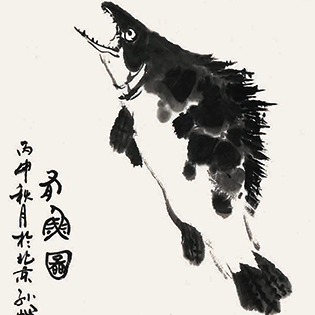 有魚圖
丙申秋月於北京孙